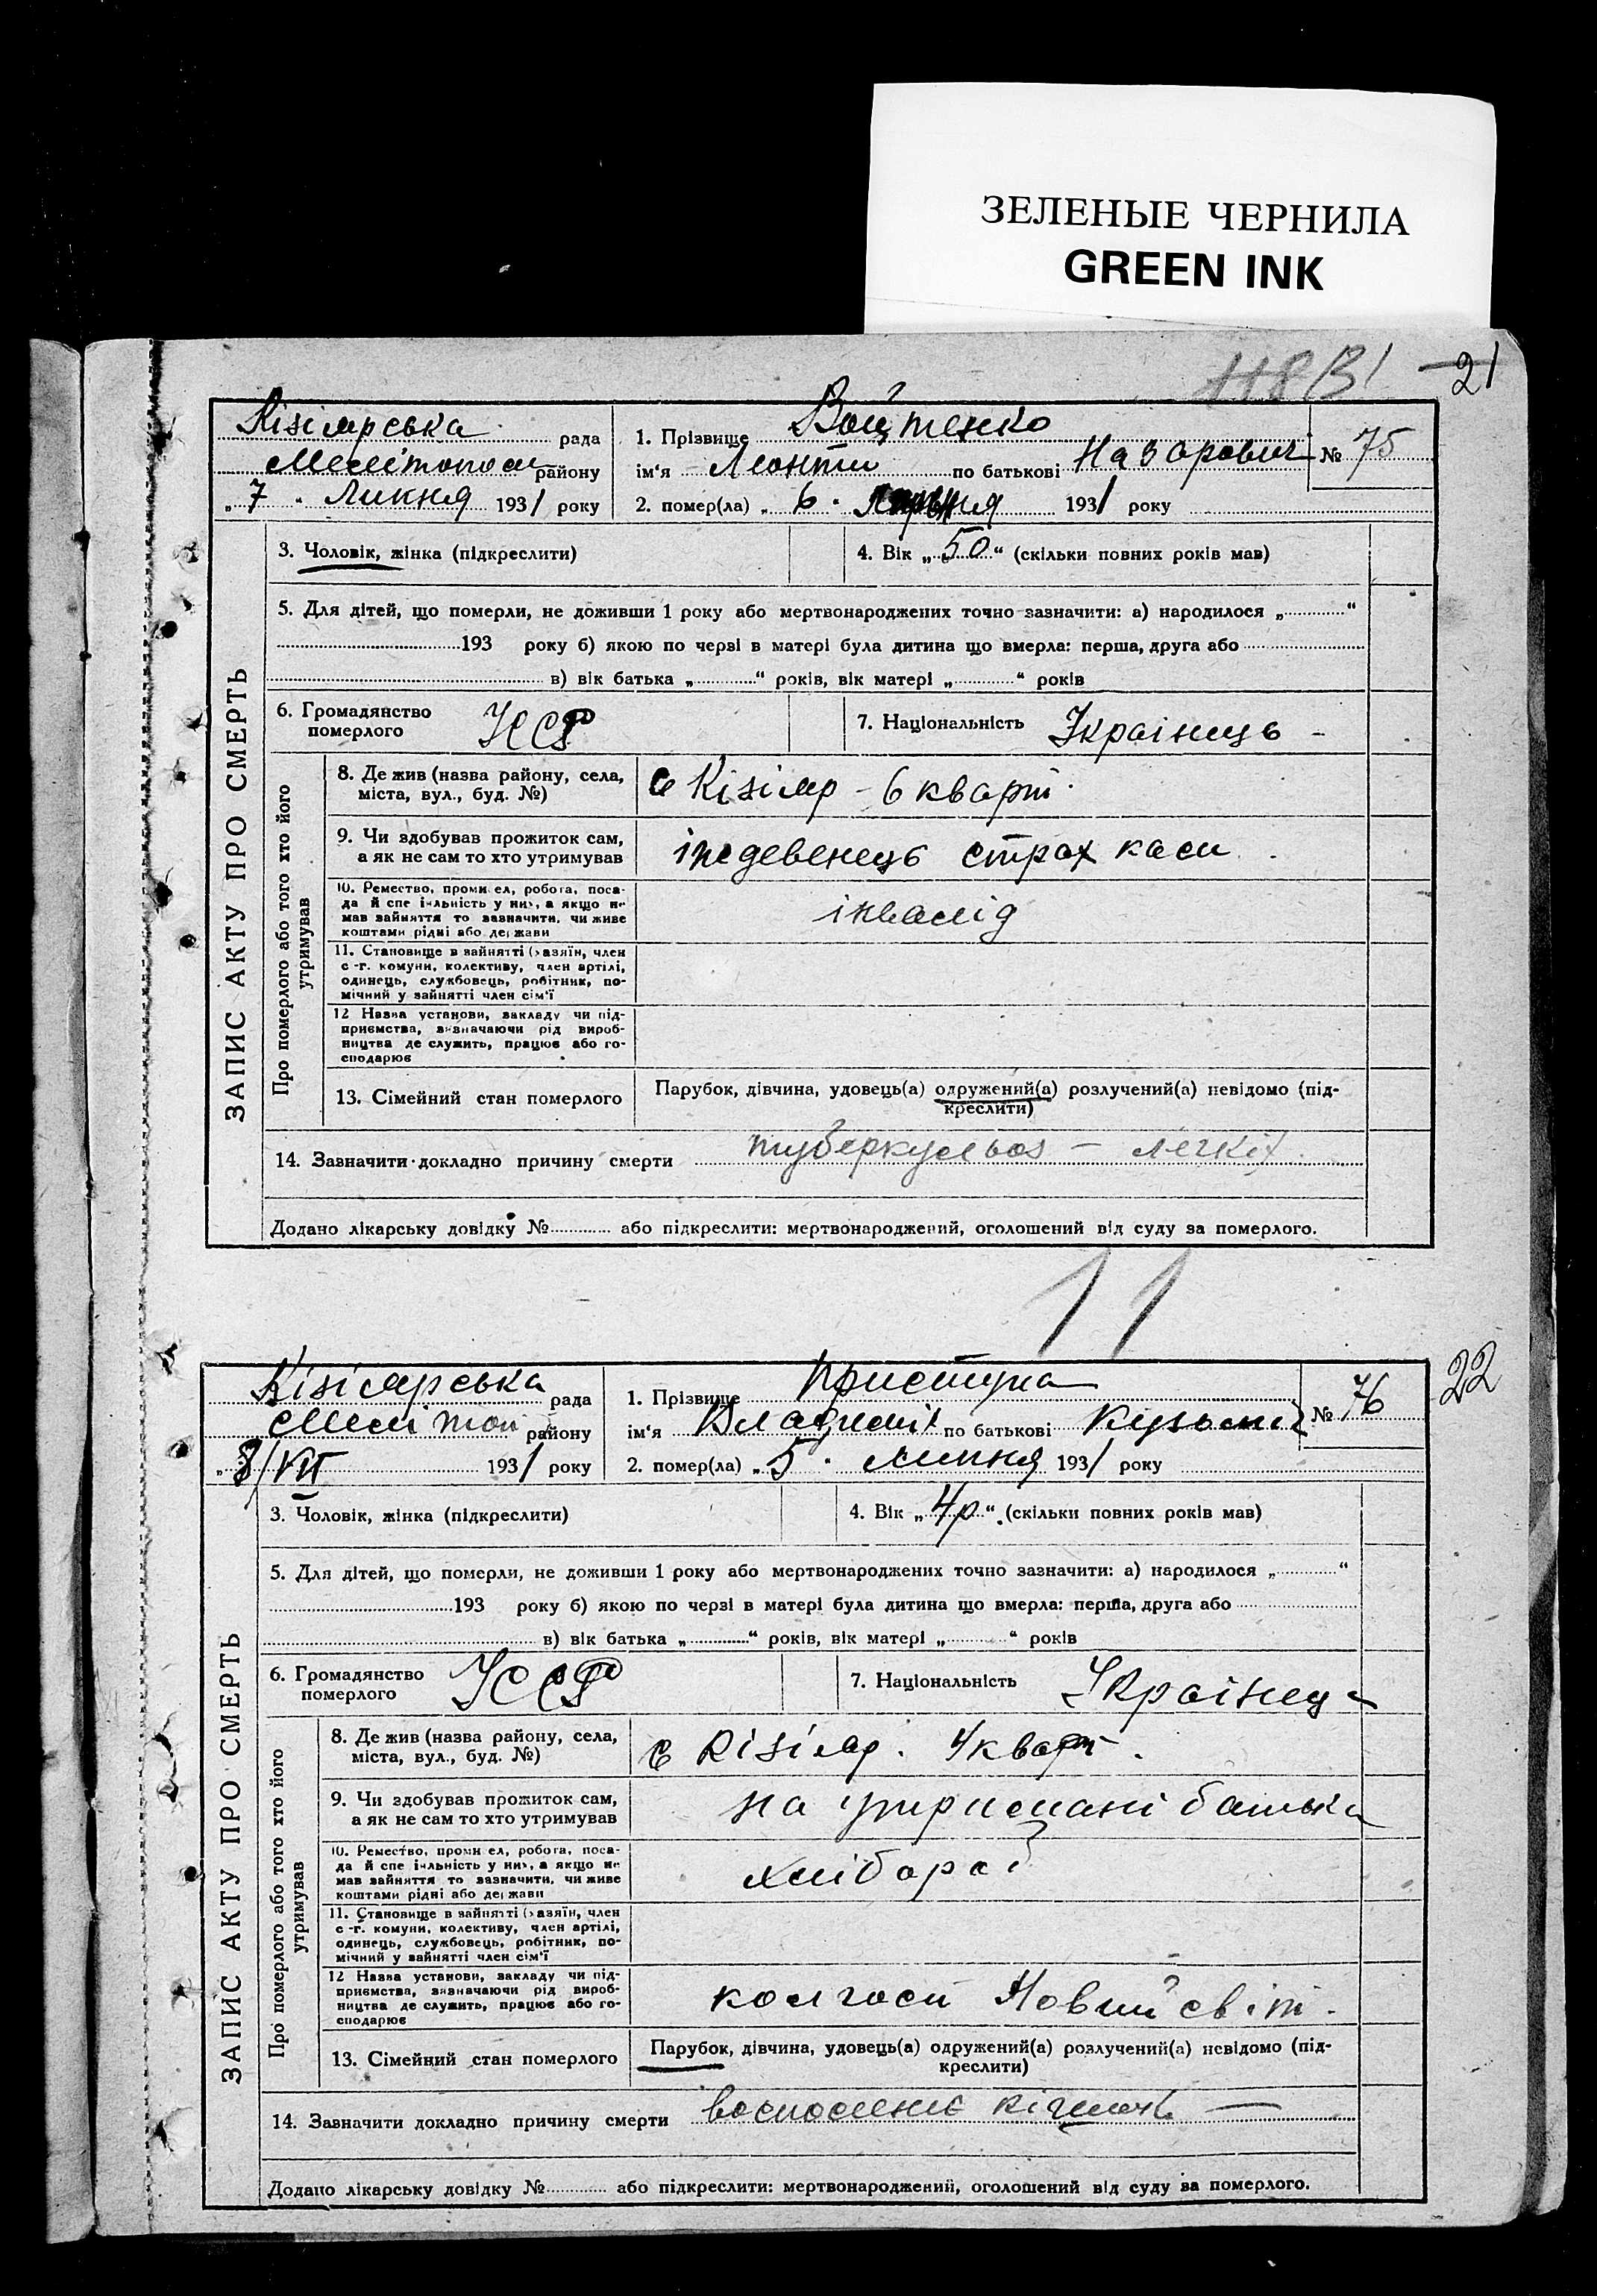 ЗЕЛЕНЫЕ ЧЕРНИЛА
GREEN INK
21
Кізіярська рада
Мелітополь району
„7" Липня 1931 року
1. Прізвище Войтенко
ім'я Леонти по батькові Назарович
№ 75
2. помер(ла) „6" 1931 року
ЗАПИС АКТУ ПРО СМЕРТЬ
3. Чоловік, жінка (підкреслити)
4. Вік „50" (скільки повних років мав)
5. Для дітей, що померли, не доживши 1 року або мертвонароджених точно зазначити: а) народилося „ "
193 року б) якою по черзі в матері була дитина що вмерла: перша, друга або
в) вік батька „ " років, вік матері „ " років
6. Громадянство
померлого
УССР
7. Національність Українець
Про померлого або того хто його
утримував
8. Де жив (назва району, села,
міста, вул., буд. №)
с Кізіяр - 6 кварт.
9. Чи здобував прожиток сам,
а як не сам то хто утримував
страх каси
10. Ремество, промисел, робота, поса-
да й спеціальність у них, а якщо не
мав зайняття то зазначити, чи живе
коштами рідні або держави
інвалід
11. Становище в зайнятті (хазяїн, член
с.-г. комуни, колективу, член артілі,
одинець, службовець, робітник, по-
мічний у зайнятті член сім'ї
12 Назва установи, закладу чи під-
приємства, зазначаючи рід вироб-
ництва де служить, працює або го-
сподарює
13. Сімейний стан померлого
Парубок, дівчина, удовець(а) одружений(а) розлучений(а) невідомо (під-
креслити)
14. Зазначити докладно причину смерти туберкульоз - легкіх
Додано лікарську довідку № або підкреслити: мертвонароджений, оголошений від суду за померлого.
11
22
Кізіярська рада
Мелітоп району
„8/VII 1931 року
1. Прізвище Приступа
ім'я Владимір по батькові Кузьміч
№ 76
2. помер(ла) „5" липня 1931 року
ЗАПИС АКТУ ПРО СМЕРТЬ
3. Чоловік, жінка (підкреслити)
4. Вік „4р" (скільки повних років мав)
5. Для дітей, що померли, не доживши 1 року або мертвонароджених точно зазначити: а) народилося „ "
193 року б) якою по черзі в матері була дитина що вмерла: перша, друга або
в) вік батька „ " років, вік матері „ " років
6. Громадянство
померлого
УССР
7. Національність Українець
Про померлого або того хто його
утримував
8. Де жив (назва району, села,
міста, вул., буд. №)
с Кізіяр. 4 кварт.
9. Чи здобував прожиток сам,
а як не сам то хто утримував
на утримані батька
10. Ремество, промисел, робота, поса-
да й спеціальність у них, а якщо не
мав зайняття то зазначити, чи живе
коштами рідні або держави
хлібароб
11. Становище в зайнятті (хазяїн, член
с.-г. комуни, колективу, член артілі,
одинець, службовець, робітник, по-
мічний у зайнятті член сім'ї
12 Назва установи, закладу чи під-
приємства, зазначаючи рід вироб-
ництва де служить, працює або го-
сподарює
колгосп Новий світ.
13. Сімейний стан померлого
Парубок, дівчина, удовець(а) одружений(а) розлучений(а) невідомо (під-
креслити)
14. Зазначити докладно причину смерти
Додано лікарську довідку № або підкреслити: мертвонароджений, оголошений від суду за померлого.